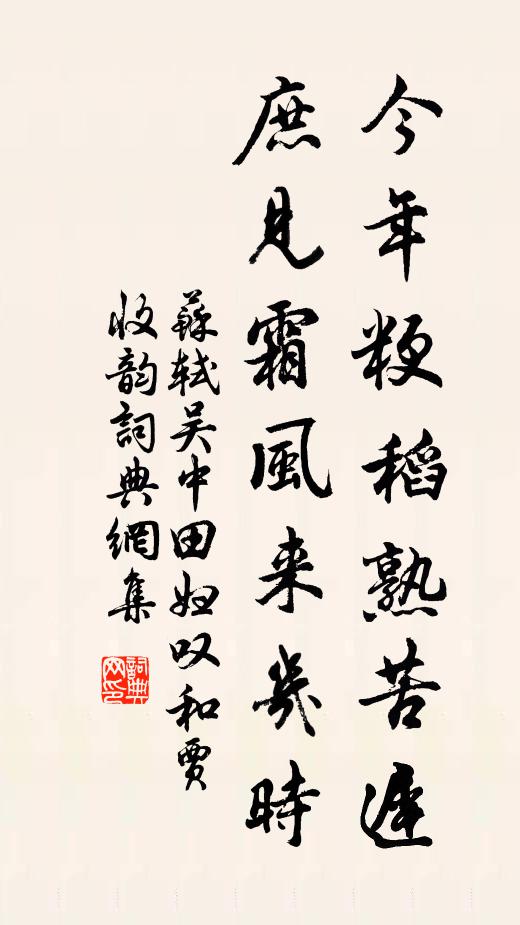 今年粳稻熟苦遲
庶見霜風来幾時
蘇軾吴中田妇叹和賈
收韵詞典網集
詞典网